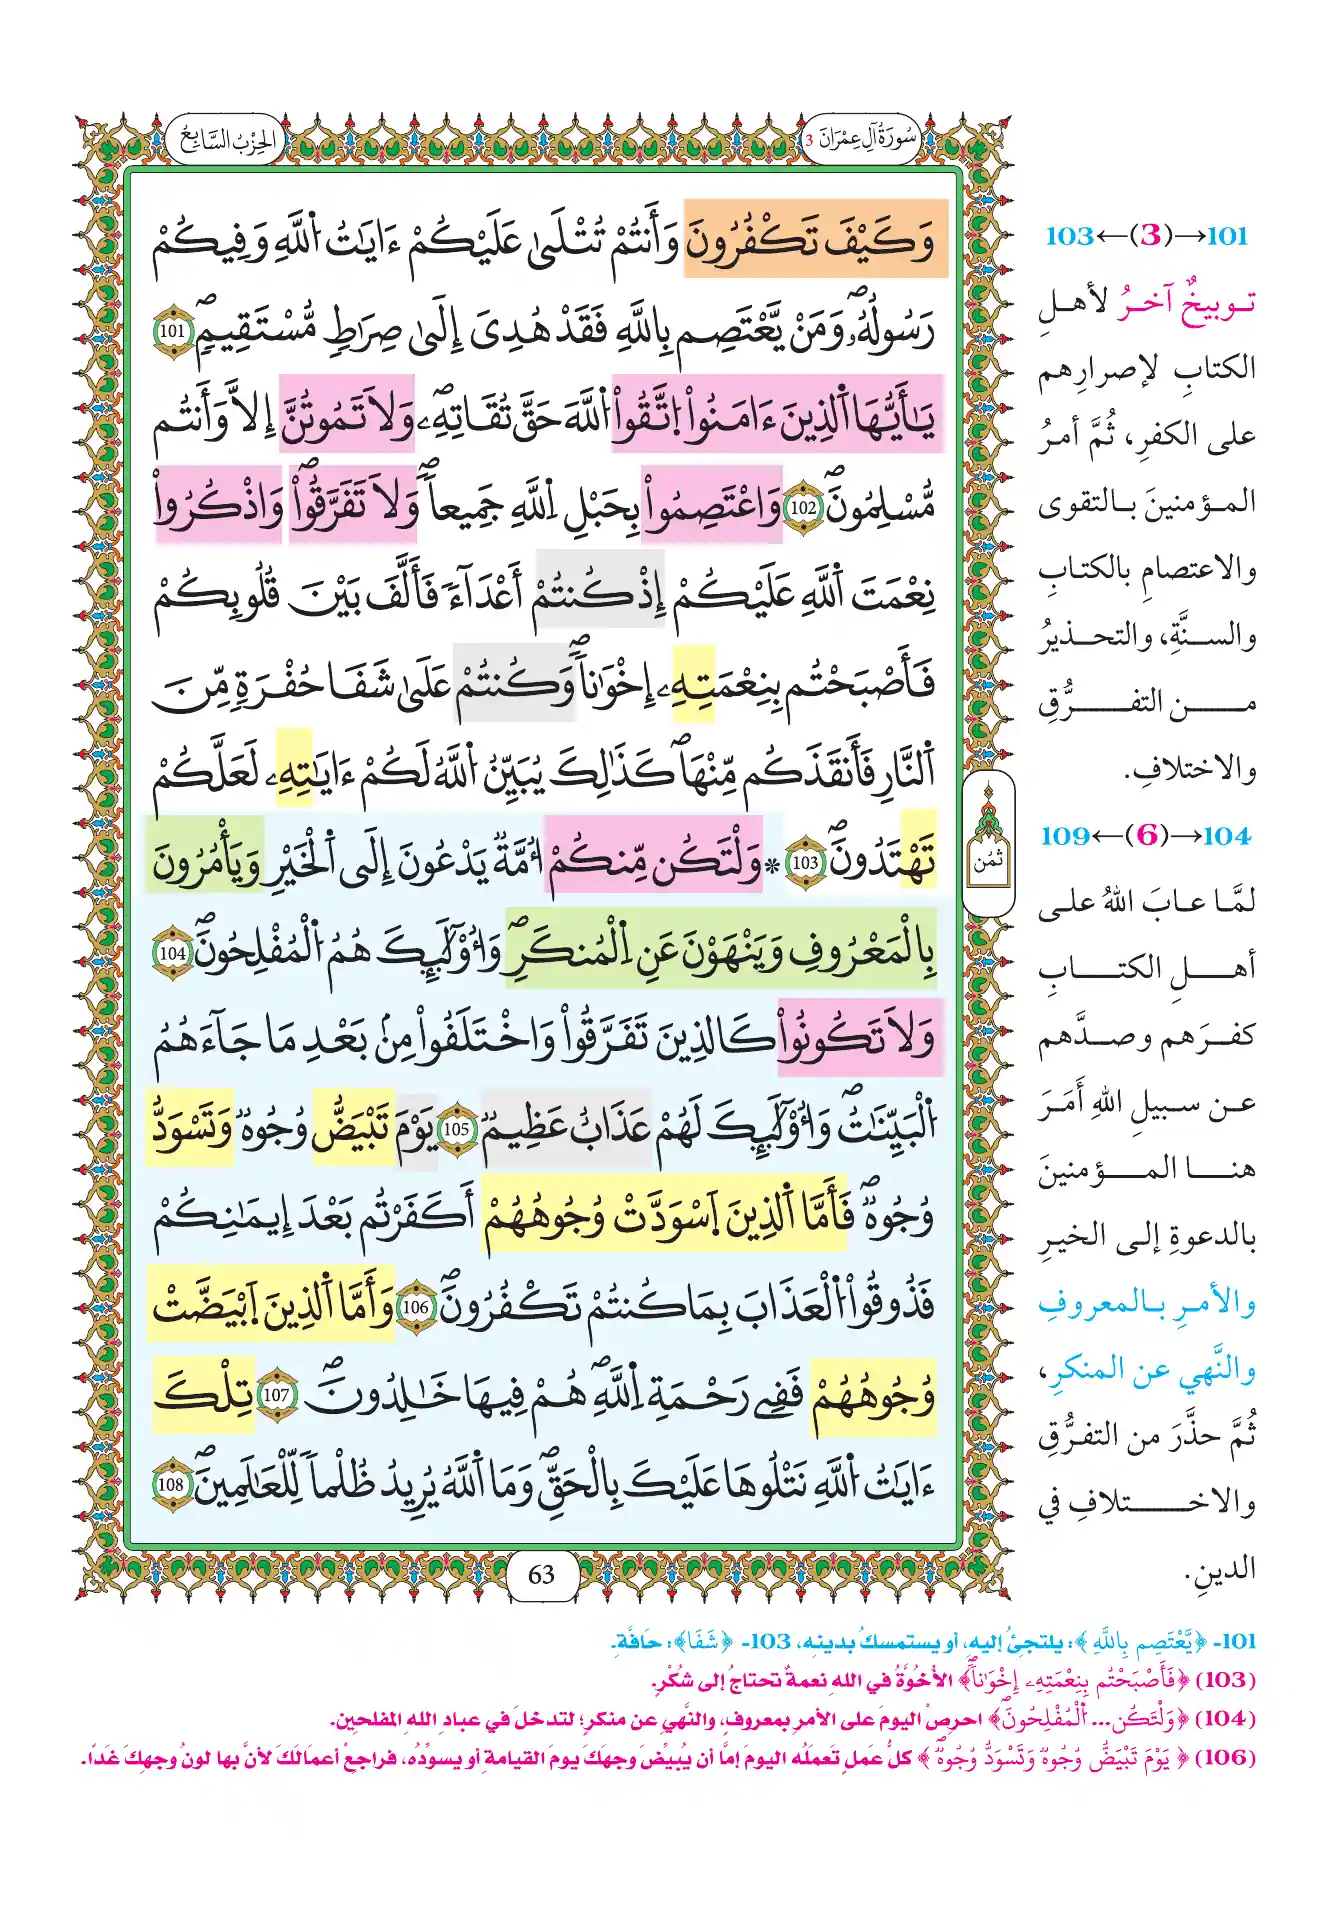 سُورَةُ آلِ عِمْرَانَ 3
الحِزْبُ السَّابِعُ
وَكَيْفَ تَكْفُرُونَ وَأَنتُمْ تُتْلَىٰ عَلَيْكُمْ ءَايَٰتُ اُ۬للَّهِ وَفِيكُمْ
رَسُولُهُۥۖ وَمَنْ يَّعْتَصِم بِاللَّهِ فَقَدْ هُدِىَ إِلَىٰ صِرَٰطٖ مُّسْتَقِيمٖۖ 101
يَٰأَيُّهَا اَ۬لذِينَ ءَامَنُواْ اُ۪تَّقُواْ اُ۬للَّهَ حَقَّ تُقَاتِهِۦۖ وَلَا تَمُوتُنَّ إِلَّا وَأَنتُم
مُّسْلِمُونَۖ 102 وَاعْتَصِمُواْ بِحَبْلِ اِ۬للَّهِ جَمِيعاٗۖ وَلَا تَفَرَّقُواْۖ وَاذْكُرُواْ
نِعْمَتَ اَ۬للَّهِ عَلَيْكُمْ إِذْ كُنتُمْ أَعْدَآءٗ فَأَلَّفَ بَيْنَ قُلُوبِكُمْ
فَأَصْبَحْتُم بِنِعْمَتِهِۦ إِخْوَٰناٗۖ وَكُنتُمْ عَلَىٰ شَفَا حُفْرَةٖ مِّنَ
اَ۬لنَّارِ فَأَنقَذَكُم مِّنْهَاۖ كَذَٰلِكَ يُبَيِّنُ اُ۬للَّهُ لَكُمْ ءَايَٰتِهِۦ لَعَلَّكُمْ
تَهْتَدُونَۖ 103 * وَلْتَكُن مِّنكُمْ أُمَّةٞ يَدْعُونَ إِلَى اَ۬لْخَيْرِ وَيَأْمُرُونَ
بِالْمَعْرُوفِ وَيَنْهَوْنَ عَنِ اِ۬لْمُنكَرِۖ وَأُوْلَٰٓئِكَ هُمُ اُ۬لْمُفْلِحُونَۖ 104
وَلَا تَكُونُواْ كَالذِينَ تَفَرَّقُواْ وَاخْتَلَفُواْ مِنۢ بَعْدِ مَا جَآءَهُمُ
اُ۬لْبَيِّنَٰتُۖ وَأُوْلَٰٓئِكَ لَهُمْ عَذَابٌ عَظِيمٞ 105 يَوْمَ تَبْيَضُّ وُجُوهٞ وَتَسْوَدُّ
وُجُوهٞۖ فَأَمَّا اَ۬لذِينَ اَ۪سْوَدَّتْ وُجُوهُهُمْ أَكَفَرْتُم بَعْدَ إِيمَٰنِكُمْ
فَذُوقُواْ اُ۬لْعَذَابَ بِمَا كُنتُمْ تَكْفُرُونَۖ 106 وَأَمَّا اَ۬لذِينَ اَ۪بْيَضَّتْ
وُجُوهُهُمْ فَفِى رَحْمَةِ اِ۬للَّهِۖ هُمْ فِيهَا خَٰلِدُونَۖ 107 تِلْكَ
ءَايَٰتُ اُ۬للَّهِ نَتْلُوهَا عَلَيْكَ بِالْحَقِّۖ وَمَا اَ۬للَّهُ يُرِيدُ ظُلْماٗ لِّلْعَٰلَمِينَۖ 108
ثُمُن
63
101→(3)←103
توبيخٌ آخرُ لأهلِ
الكتابِ لإصرارِهم
على الكفرِ، ثُمَّ أمرُ
المؤمنينَ بالتقوى
والاعتصامِ بالكتابِ
والسنَّةِ، والتحذيرُ
من التفرُّقِ
والاختلافِ.
104→(6)←109
لمَّا عابَ اللهُ على
أهلِ الكتابِ
كفرَهم وصدَّهم
عن سبيلِ اللهِ أَمَرَ
هنا المؤمنينَ
بالدعوةِ إلى الخيرِ
والأمرِ بالمعروفِ
والنَّهي عن المنكرِ،
ثُمَّ حذَّرَ من التفرُّقِ
والاختلافِ في
الدينِ.
101- ﴿يَّعْتَصِم بِاللَّهِ﴾: يلتجئُ إليهِ، أو يستمسكُ بدينِهِ، 103- ﴿شَفَا﴾: حَافَّةِ.
(103) ﴿فَأَصْبَحْتُم بِنِعْمَتِهِۦ إِخْوَٰناٗۖ﴾ الأخُوَّةُ في اللهِ نعمةٌ تحتاجُ إلى شُكْرٍ.
(104) ﴿وَلْتَكُن... اُ۬لْمُفْلِحُونَۖ﴾ احرِصْ اليومَ على الأمرِ بمعروفٍ، والنَّهيِ عن منكرٍ؛ لتدخلَ في عبادِ اللهِ المفلحينَ.
(106) ﴿يَوْمَ تَبْيَضُّ وُجُوهٞ وَتَسْوَدُّ وُجُوهٞۖ﴾ كلُّ عملٍ تَعمَلُه اليومَ إمَّا أن يُبيِّضَ وجهَكَ يومَ القيامةِ أو يسوِّدُه، فراجعْ أعمَالَكَ لأنَّ بها لونُ وجهِكَ غَدًا.